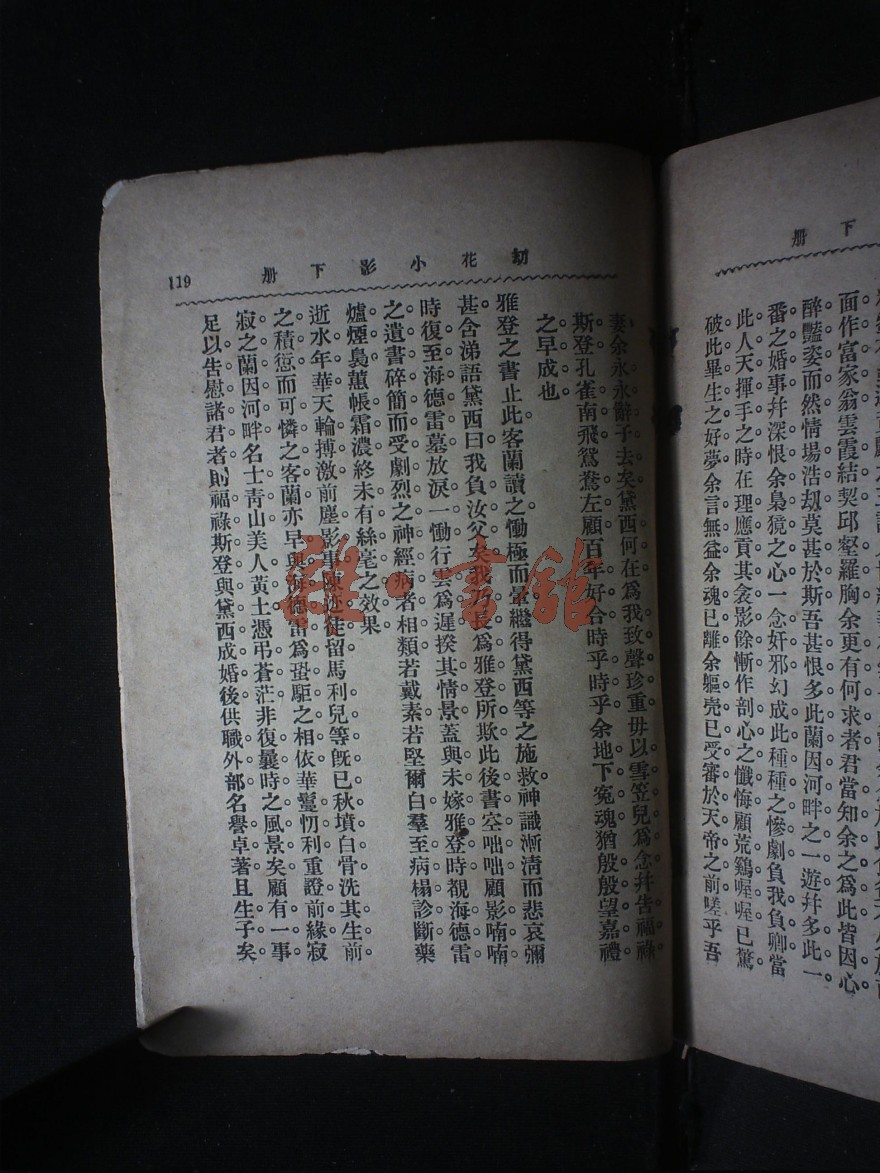 下册
面作富家翁雲霞結契邱壑羅胸余更有何求者君當知余之爲此皆因心
醉豔姿而然情場浩劫莫甚於斯吾甚恨多此蘭因河畔之一遊幷多此一
番之婚事幷深恨余梟獍之心一念奸邪幻成此種種之慘劇負我負卿當
此人天揮手之時在理應貢其衾影餘慚作剖心之懺悔顧荒鷄喔喔已驚
破此畢生之好夢余言無益余魂已離余軀壳已受審於天帝之前嗟乎吾
劫花小影下册
119
妻余永永辭子去矣黛西何在爲我致聲珍重毋以雪笠兒爲念幷告福祿
斯登孔雀南飛鴛鴦左顧百年好合時乎時乎余地下冤魂猶殷殷望嘉禮
之早成也
雅登之書止此客蘭讀之慟極而暈繼得黛西等之施救神識漸清而悲哀彌
甚含涕語黛西曰我負汝父矣我乃長爲雅登所欺此後書空咄咄顧影喃喃
時復至海德雷墓放淚一慟行雲爲遲揆其情景蓋與未嫁雅登時覩海德雷
之遺書碎簡而受劇烈之神經病者相類若戴素若堅爾白羣至病榻診斷藥
爐煙裊蕙帳霜濃終未有絲毫之效果
逝水年華天輪搏激前塵影事陳迹徒留馬利兒等旣已秋墳白骨洗其生前
之積愆而可憐之客蘭亦早與海德雷爲蛩駏之相依華鬘忉利重證前緣寂
寂之蘭因河畔名士靑山美人黃土憑弔蒼茫非復曩時之風景矣顧有一事
足以告慰諸君者則福祿斯登與黛西成婚後供職外部名譽卓著且生子矣
雜·書館